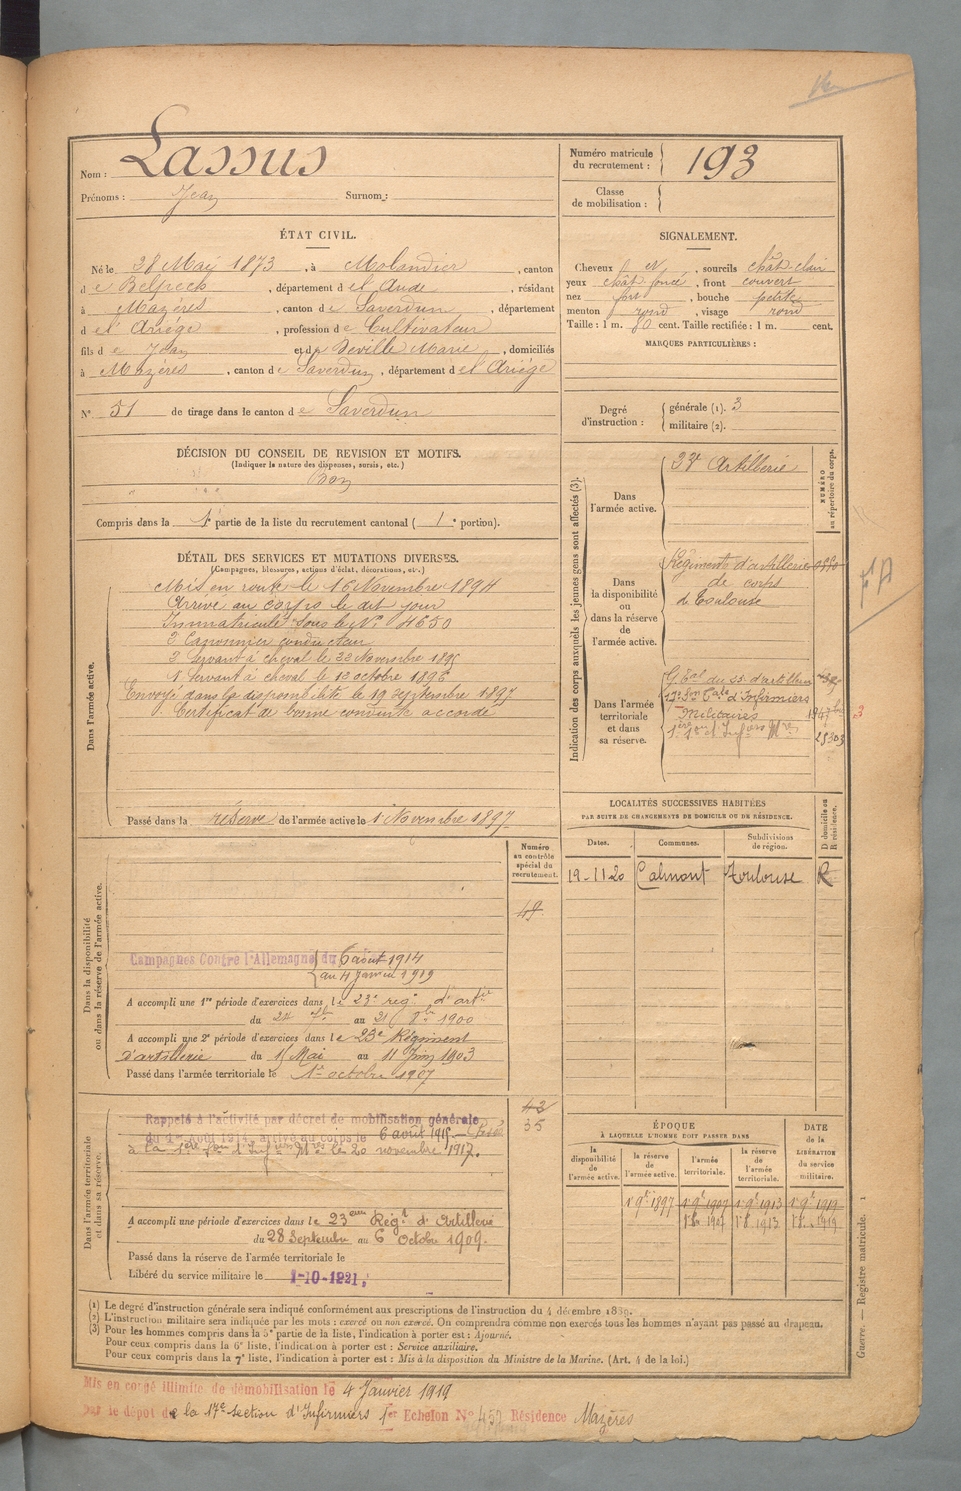 Nom : Lassus
Prénoms : Jean Surnom :
Numéro matricule du recrutement : 193
Classe de mobilisation :
ÉTAT CIVIL.
Né le 28 Mai 1873, à Molandier, canton
de Belpech, département de l'Aude, résidant
à Mazères, canton de Saverdun, département
de l'Ariège, profession de Cultivateur
fils de Jean et de Deville Marie, domiciliés
à Mazères, canton de Saverdun, département de l'Ariège
N° 51 de tirage dans le canton de Saverdun
SIGNALEMENT.
Cheveux et , sourcils chât-clair
yeux chât-foncé, front couvert
nez fort, bouche petite
menton rond, visage rond
Taille : 1 m. 80 cent. Taille rectifiée : 1 m. cent.
MARQUES PARTICULIÈRES :
Degré d'instruction : générale (1). 3
militaire (2).
DÉCISION DU CONSEIL DE REVISION ET MOTIFS.
(Indiquer la nature des dispenses, sursis, etc.)
Bon
Compris dans la 1e partie de la liste du recrutement cantonal ( 1e portion).
DÉTAIL DES SERVICES ET MUTATIONS DIVERSES.
(Campagnes, blessures, actions d'éclat, décorations, etc.)
Dans l'armée active.
Mis en route le 16 Novembre 1894
Arrivé au corps le dit jour
Immatriculé sous le N° 4650
2 Canonnier conducteur
2 Servant à cheval le 22 Novembre 1895
1 Servant à cheval le 12 octobre 1896
Envoyé dans la disponibilité le 19 Septembre 1897
Certificat de bonne conduite accordé
Passé dans la réserve de l'armée active le 1 Novembre 1897
Indication des corps auxquels les jeunes gens sont affectés (3).
NUMÉRO au répertoire du corps.
Dans l'armée active.
23e Artillerie
Dans la disponibilité ou dans la réserve de l'armée active.
Régiments d'artillerie
de corps
de Toulouse
Dans l'armée territoriale et dans sa réserve.
G. Toal du 23. d'artillerie
17e Son Tale d'Infirmiers
Militaires 1947 bis
28303
LOCALITÉS SUCCESSIVES HABITÉES
PAR SUITE DE CHANGEMENTS DE DOMICILE OU DE RÉSIDENCE.
Dates. Communes. Subdivisions de région. D domicile ou R résidence.
19-11-20 Calmont Toulouse R
Dans la disponibilité ou dans la réserve de l'armée active.
Numéro au contrôle spécial du recrutement.
49
Campagnes Contre l'Allemagne du 6 aout 1914
au 4 Janvier 1919
A accompli une 1re période d'exercices dans le 23e reg. d'artie
du 24 7bre au 21 8bre 1900
A accompli une 2e période d'exercices dans le 23e Régiment
d'artillerie du 15 Mai au 11 Juin 1903
Passé dans l'armée territoriale le 1er octobre 1907
Dans l'armée territoriale et dans sa réserve.
43
35
Rappelé à l'activité par décret de mobilisation générale
du 1er Août 1914, arrivé au corps le 6 août 1915.- Passé
à la le 20 novembre 1917.
A accompli une période d'exercices dans le 23eme Régt d'Artillerie
du 28 Septembre au 6 Octobre 1909.
Passé dans la réserve de l'armée territoriale le
Libéré du service militaire le 1-10-1921.
ÉPOQUE
À LAQUELLE L'HOMME DOIT PASSER DANS
la disponibilité de l'armée active. la réserve de l'armée active. l'armée territoriale. la réserve de l'armée territoriale. DATE de la LIBÉRATION du service militaire.
1r 9re 1897 1r 9re 1907 1r 9re 1913 1r 9re 1919
1r 8re 1907 1r 8re 1913 1r 8re 1919
(1) Le degré d'instruction générale sera indiqué conformément aux prescriptions de l'instruction du 4 décembre 1889.
(2) L'instruction militaire sera indiquée par les mots : exercé ou non exercé. On comprendra comme non exercés tous les hommes n'ayant pas passé au drapeau.
(3) Pour les hommes compris dans la 5e partie de la liste, l'indication à porter est : Ajourné.
Pour ceux compris dans la 6e liste, l'indication à porter est : Service auxiliaire.
Pour ceux compris dans la 7e liste, l'indication à porter est : Mis à la disposition du Ministre de la Marine. (Art. 4 de la loi.)
Guerre. — Registre matricule. 1
Mis en congé illimité de démobilisation le 4 Janvier 1919
par le dépôt de la 17e section d'Infirmiers 1er Echelon N° 457 Résidence Mazères